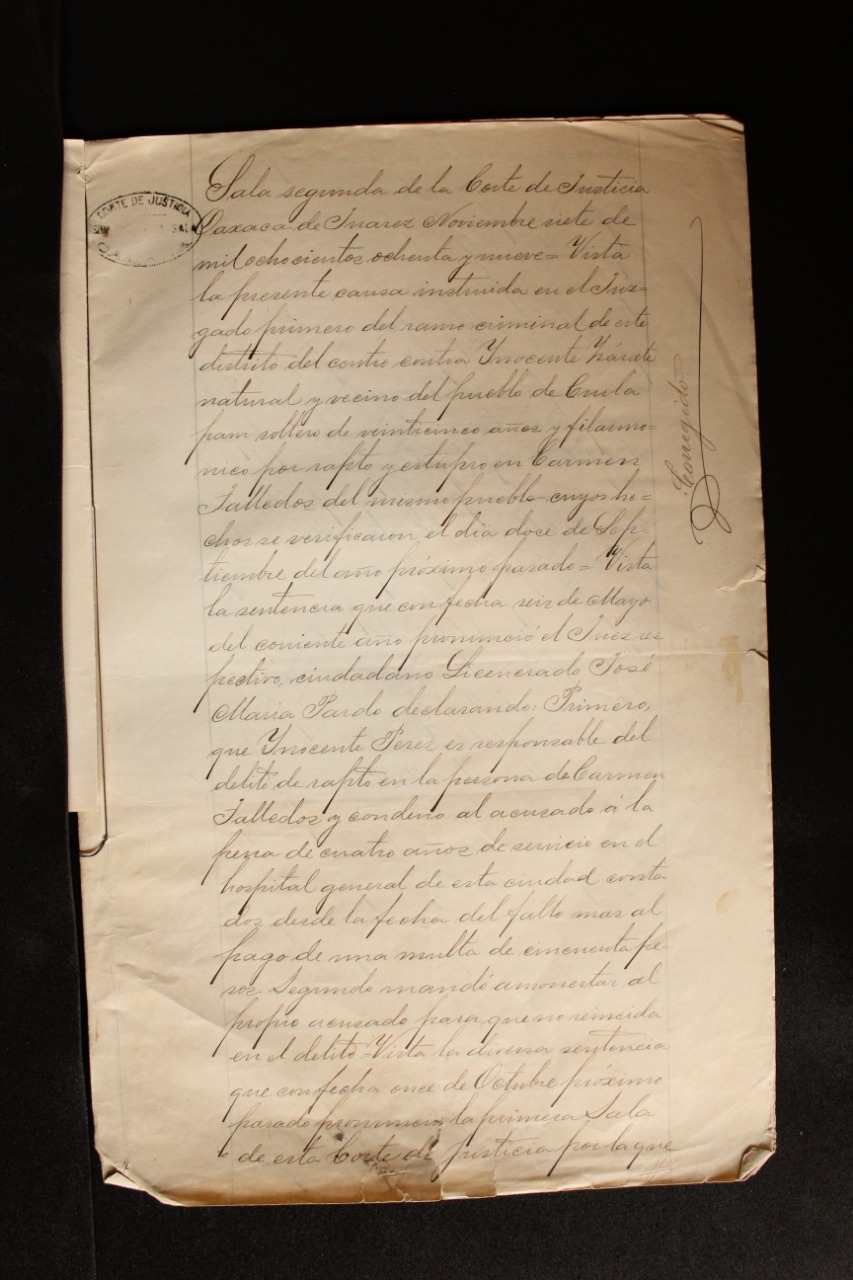 CORTE DE JUSTICIA
Sala segunda de la Corte de Justicia
Oaxaca de Juarez Noviembre siete de
mil ochocientos ochenta y nueve= Vista
la presente causa instruida en el Juz-
gado primero del ramo criminal de este
distrito del centro contra Ynocente Zárate
natural y vecino del pueblo de Cuila
pam soltero de veinticinco años y filarmo-
nico por rapto y estupro en Carmen
Talledos del mismo pueblo cuyos he=
chos se verificaron el dia doce de Sep-
tiembre del año próximo pasado= Vista
la sentencia que con fecha seis de Mayo
del corriente año pronunció el Juez res
pectivo, ciudadano Licenciado José
Maria Pardo declarando: Primero,
que Ynocente Perez es responsable del
delito de rapto en la persona de Carmen
Talledos y condeno al acusado á la
pena de cuatro años de servicio en el
hospital general de esta ciudad conta
dos desde la fecha del fallo mas al
pago de una multa de cincuenta pe-
sos. Segundo mandó amonestar al
propio acusado para que no reincida
en el delito=Vista la diversa sentencia
que con fecha once de Octubre próximo
pasado pronuncio la primera Sala
de esta Corte de Justicia por la que
Corregido